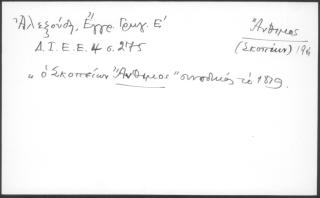 Ἀλεξούδη, Ἔγγρ. Γρηγ. Ε'
Δ.Ι.Ε.Ε. 4 σ. 275
Ἄνθιμος
(Σκοπείων)
„ ὁ Σκοπείων Ἄνθιμος " συνοδικός τό 1819.